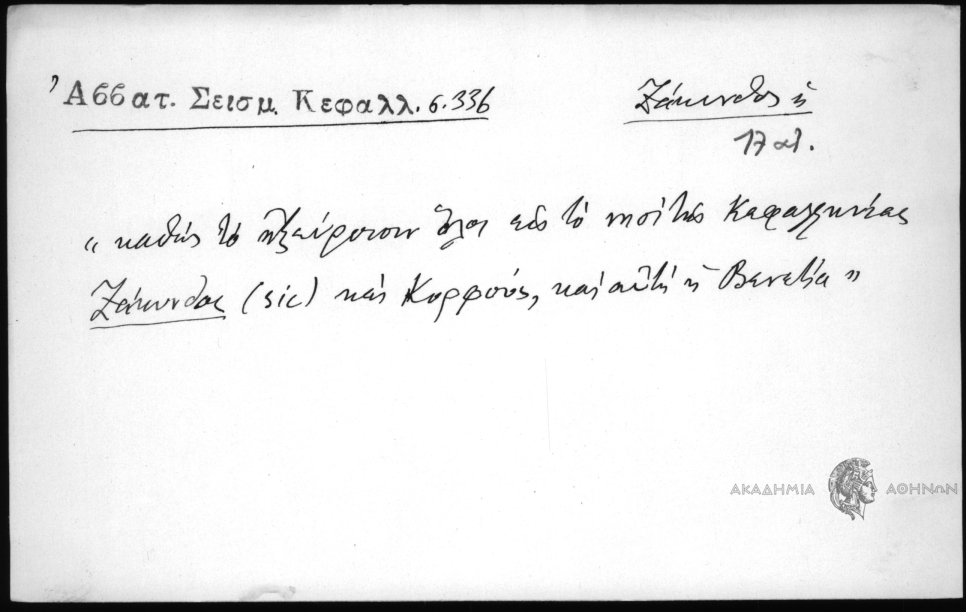 Ἀββατ. Σεισμ. Κεφαλλ. σ. 336
Ζάκυνθος ἡ
17 αἰ.
"καθὼς τὸ ἠξεύρουσιν ὅλοι εἰς τὸ νησὶ τῆς Κεφαλληνίας
Ζάκυνθος (sic) καὶ Κορφούς, καὶ αὐτὴ ἡ Βενετία"
ΑΚΑΔΗΜΙΑ ΑΘΗΝΩΝ